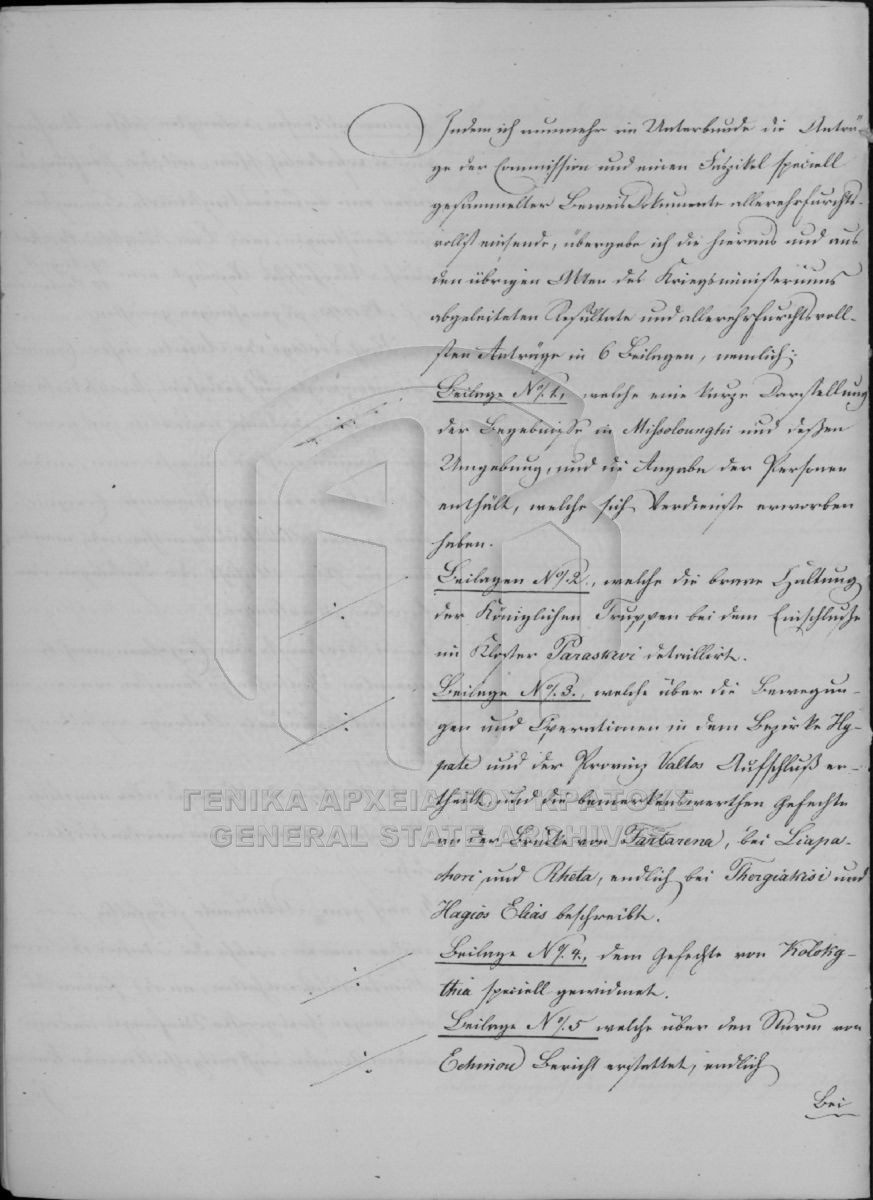 Indem ich nunmehr im Unterbunde die Anträ-
ge der Commission und einen Faszikel speciell
gesammelter Beweis Dokumente allerehrfurchts-
vollst einsende, übergebe ich die hieraus und aus
den übrigen Akten des Kriegsministeriums
abgeleiteten Resultate und allerehrfurchtsvoll-
sten Anträge in 6 Beilagen, nemlich:
Beilage No. 1., welche eine kurze Darstellung
der Begebniße in Missolounghi und deßen
Umgebung, und die Angabe der Personen
enthält, welche sich Verdienste erworben
haben.
Beilagen No. 2., welche die brave Haltung
der Königlichen Truppen bei dem Einschluße
im Kloster Paraskevi detaillirt.
Beilage No. 3., welche über die Bewegun-
gen und Operationen in dem Bezirke Hy-
pate und der Provinz Valtos Aufschluß er-
theilt, und die bemerkenswerthen Gefechte
an der Brücke von Tartarena, bei Liapa-
chori, und Rheta, endlich bei Thergiakisi und
Hagios Elias beschreibt.
Beilage No. 4., dem Gefechte von Koloky-
thia speciell gewidmet.
Beilage No. 5 welche über den Sturm von
Echinou Bericht erstattet, endlich
Bei
ΓΕΝΙΚΑ ΑΡΧΕΙΑ ΤΟΥ ΚΡΑΤΟΥΣ
GENERAL STATE ARCHIVES